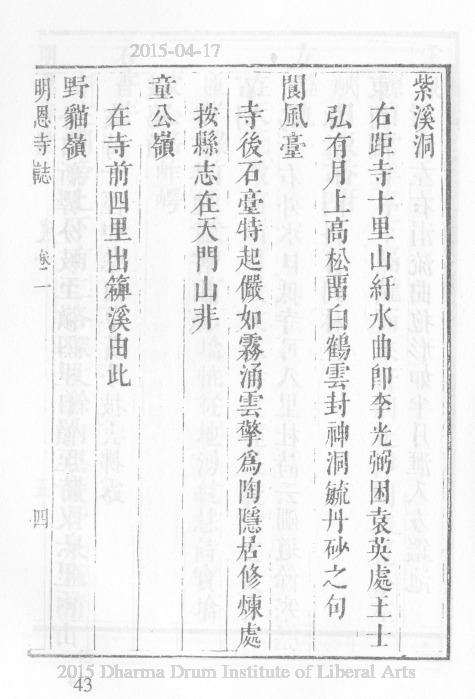 2015-04-17
紫溪洞
右距寺十里山紆水曲卽李光弼困袁英處王士
弘有月上高松畱白鶴雲封神洞毓丹砂之句
閬風臺
寺後石臺特起儼如霧涌雲擎爲陶隱居修煉處
按縣志在天門山非
童公嶺
在寺前四里出簳溪由此
野貓嶺
明恩寺誌 卷二 四
2015 Dharma Drum Institute of Liberal Arts
43